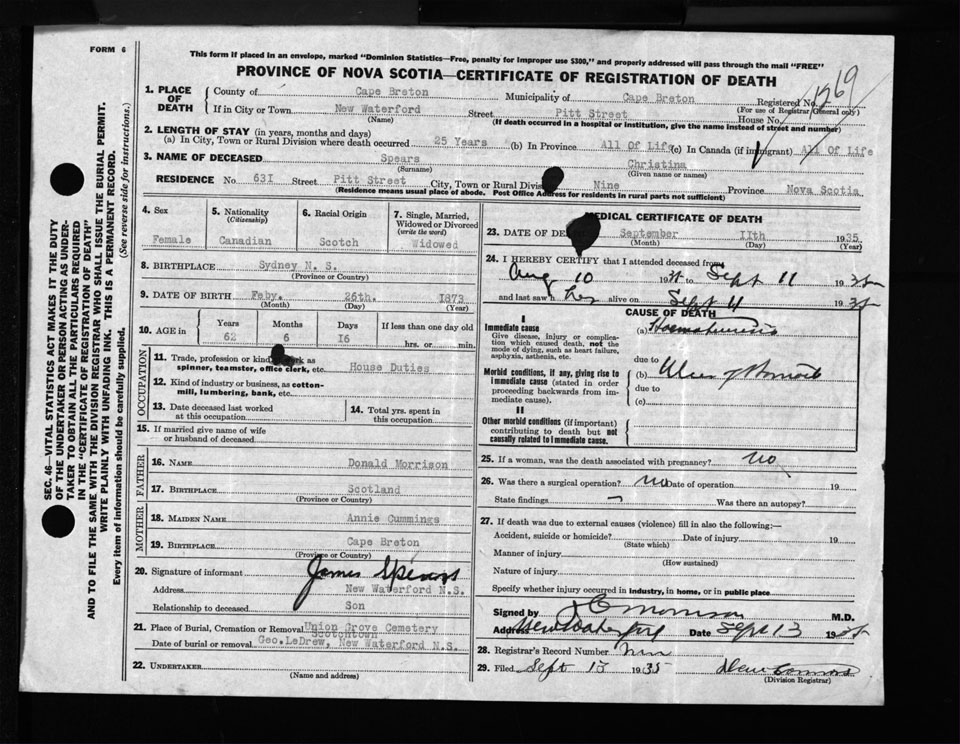 FORM 6
This form if placed in an envelope, marked "Dominion Statistics—Free, penalty for improper use $300," and properly addressed will pass through the mail "FREE"
PROVINCE OF NOVA SCOTIA—CERTIFICATE OF REGISTRATION OF DEATH
SEC. 46—VITAL STATISTICS ACT MAKES IT THE DUTY
OF THE UNDERTAKER OR PERSON ACTING AS UNDER-
TAKER TO OBTAIN ALL THE PARTICULARS REQUIRED
IN THE "CERTIFICATE OF REGISTRATION OF DEATH"
AND TO FILE THE SAME WITH THE DIVISION REGISTRAR WHO SHALL ISSUE THE BURIAL PERMIT.
WRITE PLAINLY WITH UNFADING INK. THIS IS A PERMANENT RECORD.
Every item of information should be carefully supplied. (See reverse side for instructions.)
1. PLACE OF DEATH
County of Cape Breton Municipality of Cape Breton Registered No.
(For use of Registrar General only)
If in City or Town New Waterford Street Pitt Street House No.
(Name) (If death occurred in a hospital or institution, give the name instead of street and number)
2. LENGTH OF STAY (in years, months and days)
(a) In City, Town or Rural Division where death occurred 25 Years (b) In Province All Of Life (c) In Canada (if immigrant) All Of Life
3. NAME OF DECEASED Spears Christina
(Surname) (Given name or names)
RESIDENCE No. 63I Street Pitt Street City, Town or Rural Nine Province Nova Scotia
(Residence means usual place of abode. Post Office Address for residents in rural parts not sufficient)
4. Sex
Female
5. Nationality
(Citizenship)
Canadian
6. Racial Origin
Scotch
7. Single, Married,
Widowed or Divorced
(write the word)
Widowed
8. BIRTHPLACE Sydney N. S.
(Province or Country)
9. DATE OF BIRTH Feby. 26th. I873
(Month) (Day) (Year)
10. AGE in Years Months Days If less than one day old
62 6 I6 hrs. or min.
OCCUPATION
11. Trade, profession or kind work as
spinner, teamster, office clerk, etc. House Duties
12. Kind of industry or business, as cotton-
mill, lumbering, bank, etc.
13. Date deceased last worked
at this occupation
14. Total yrs. spent in
this occupation
15. If married give name of wife
or husband of deceased
FATHER
16. NAME Donald Morrison
17. BIRTHPLACE Scotland
(Province or Country)
MOTHER
18. MAIDEN NAME Annie Cummings
19. BIRTHPLACE Cape Breton
(Province or Country)
20. Signature of informant James Spears
Address New Waterford N.S.
Relationship to deceased Son
21. Place of Burial, Cremation or Removal Union Grove Cemetery
Scotchtown
Date of burial or removal Geo. LeDrew, New Waterford N.S.
22. UNDERTAKER
(Name and address)
MEDICAL CERTIFICATE OF DEATH
23. DATE OF September IIth 1935
(Month) (Day) (Year)
24. I HEREBY CERTIFY that I attended deceased from
Aug 10 19 Sept 11 1935
and last saw her alive on Sept 11 1935
CAUSE OF DEATH
I
Immediate cause
Give disease, injury or complica-
tion which caused death, not the
mode of dying, such as heart failure,
asphyxia, asthenia, etc.
(a) Haematemesis
due to
Morbid conditions, if any, giving rise to
immediate cause (stated in order
proceeding backwards from im-
mediate cause).
(b) Ulcer of Stomach
due to
(c)
II
Other morbid conditions (if important)
contributing to death but not
causally related to immediate cause.
25. If a woman, was the death associated with pregnancy? no
26. Was there a surgical operation? no Date of operation 19
State findings Was there an autopsy?
27. If death was due to external causes (violence) fill in also the following:—
Accident, suicide or homicide? Date of injury 19
(State which)
Manner of injury
(How sustained)
Nature of injury
Specify whether injury occurred in industry, in home, or in public place
Signed by Morrison M.D.
Address New Waterford Date Sept 13 1935
28. Registrar's Record Number
29. Filed Sept 13 1935
(Division Registrar)